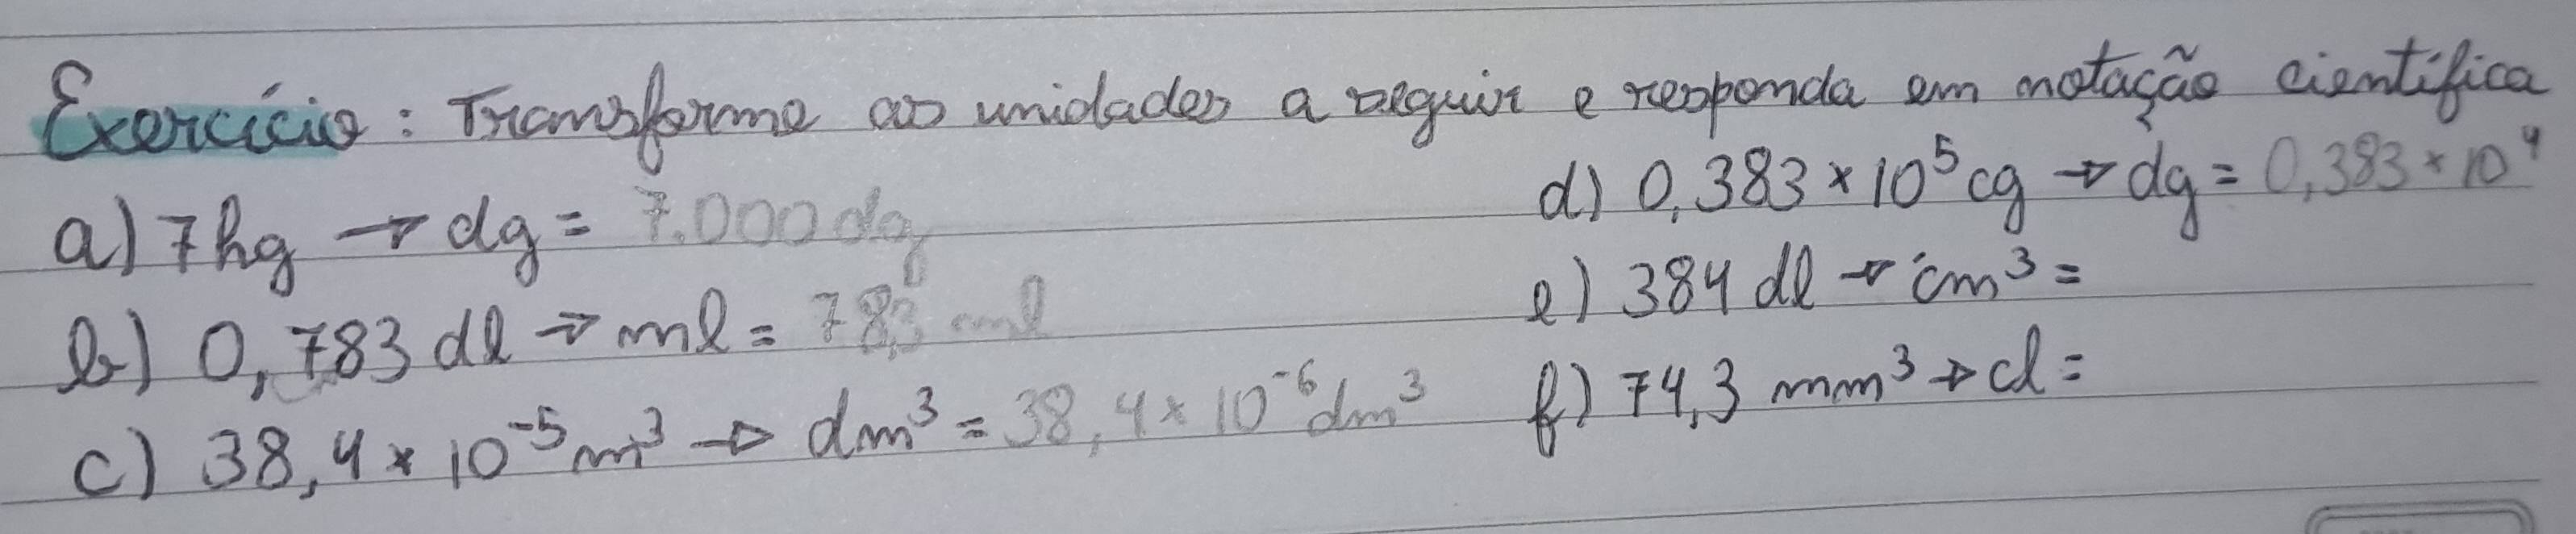 Exercício: Transforme as unidades a seguir e responda em notação científica
a) 7hg → dg = 7.000 dg
b) 0,783 dl → ml = 78,3 ml
c) 38,4 × 10⁻⁵ m³ → dm³ = 38,4 × 10⁻⁶ dm³
d) 0,383 × 10⁵ cg → dg = 0,383 × 10⁴
e) 384 dl → cm³ =
f) 74,3 mm³ → cl =